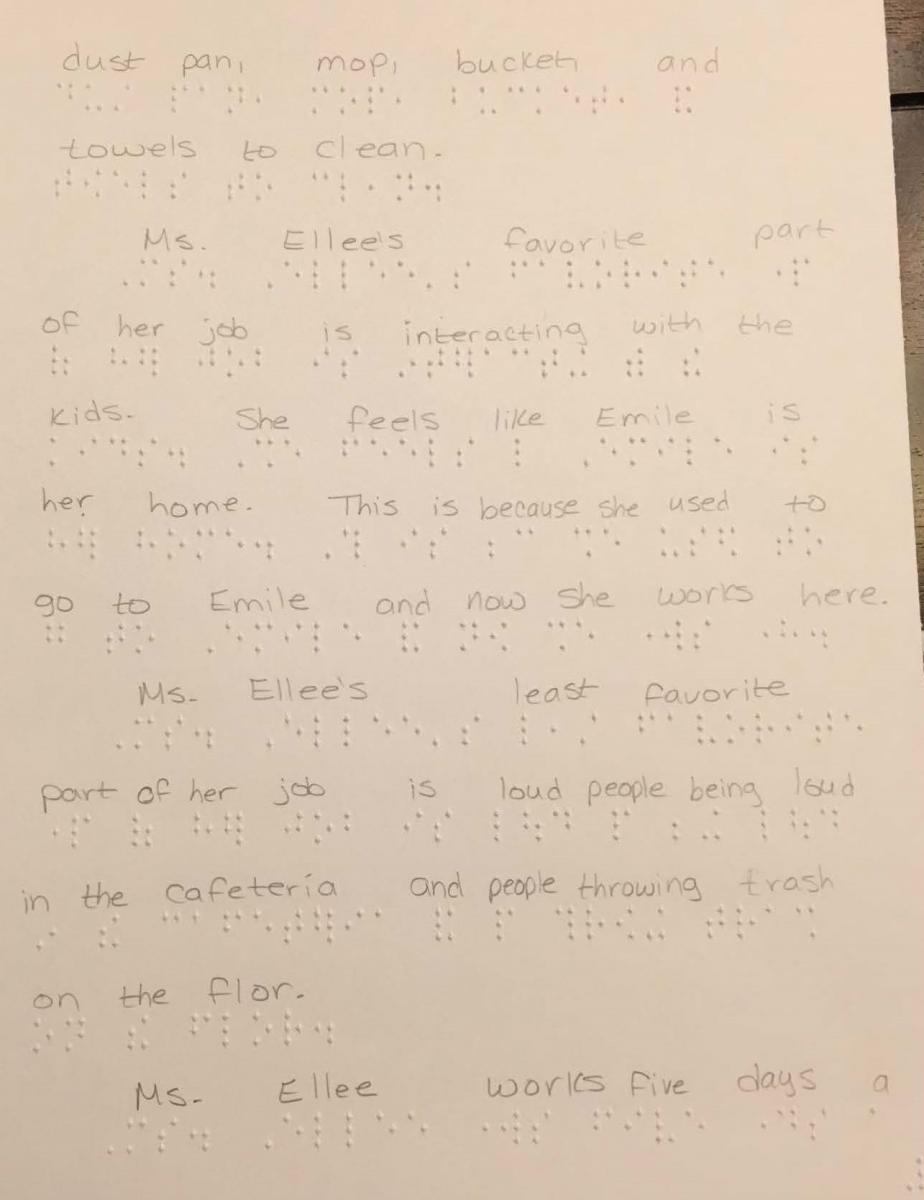 dust pan, mop, bucket, and
towels to clean.
Ms. Ellee's favorite part
of her job is interacting with the
kids. She feels like Emile is
her home. This is because she used to
go to Emile and now she works here.
Ms. Ellee's least favorite
part of her job is loud people being loud
in the cafeteria and people throwing trash
on the flor.
Ms. Ellee works five days a